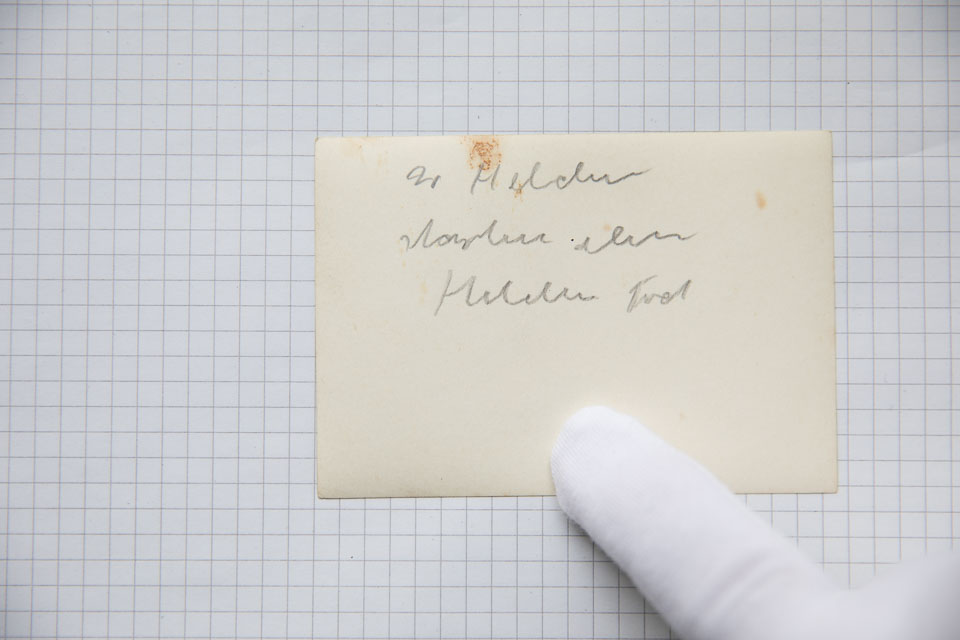 2 Helden
starben den
Helden Tod